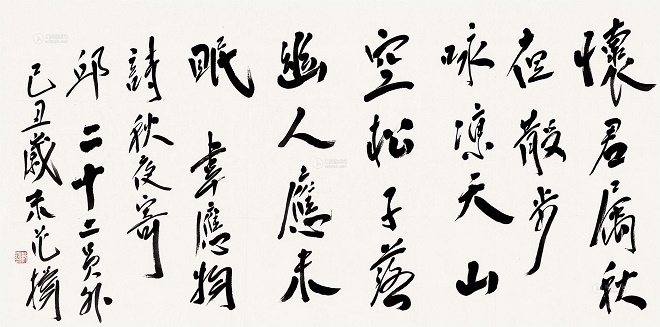 懷君屬秋
夜散步
咏涼天山
空松子落
幽人應未
眠 韋應物
詩秋夜寄
邱二十二員外
己丑歲末